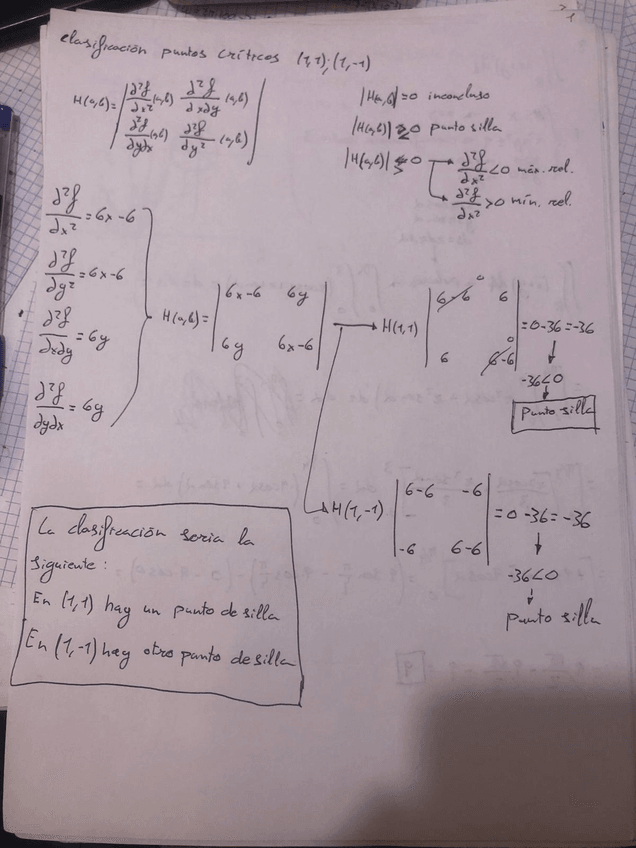 clasificación puntos críticos (1,1);(1,-1)
H(a,b)= | ∂²f/∂x² (a,b) ∂²f/∂x∂y (a,b) |
| ∂²f/∂y∂x (a,b) ∂²f/∂y² (a,b) |
|H(a,b)|=0 inconcluso
|H(a,b)| 0 punto silla
|H(a,b)| 0 → ∂²f/∂x² <0 máx. rel.
→ ∂²f/∂x² >0 mín. rel.
∂²f/∂x² = 6x-6
∂²f/∂y² = 6x-6
∂²f/∂x∂y = 6y
∂²f/∂y∂x = 6y
H(a,b)= | 6x-6 6y |
| 6y 6x-6 |
→ H(1,1) | 6-6 0 6 | = 0-36 = -36
| 6 6-6 0 |
↓
-36<0
↓
punto silla
→ H(1,-1) | 6-6 -6 | = 0-36 = -36
| -6 6-6 |
↓
-36<0
↓
punto silla
La clasificación seria la
siguiente:
En (1,1) hay un punto de silla
En (1,-1) hay otro punto de silla